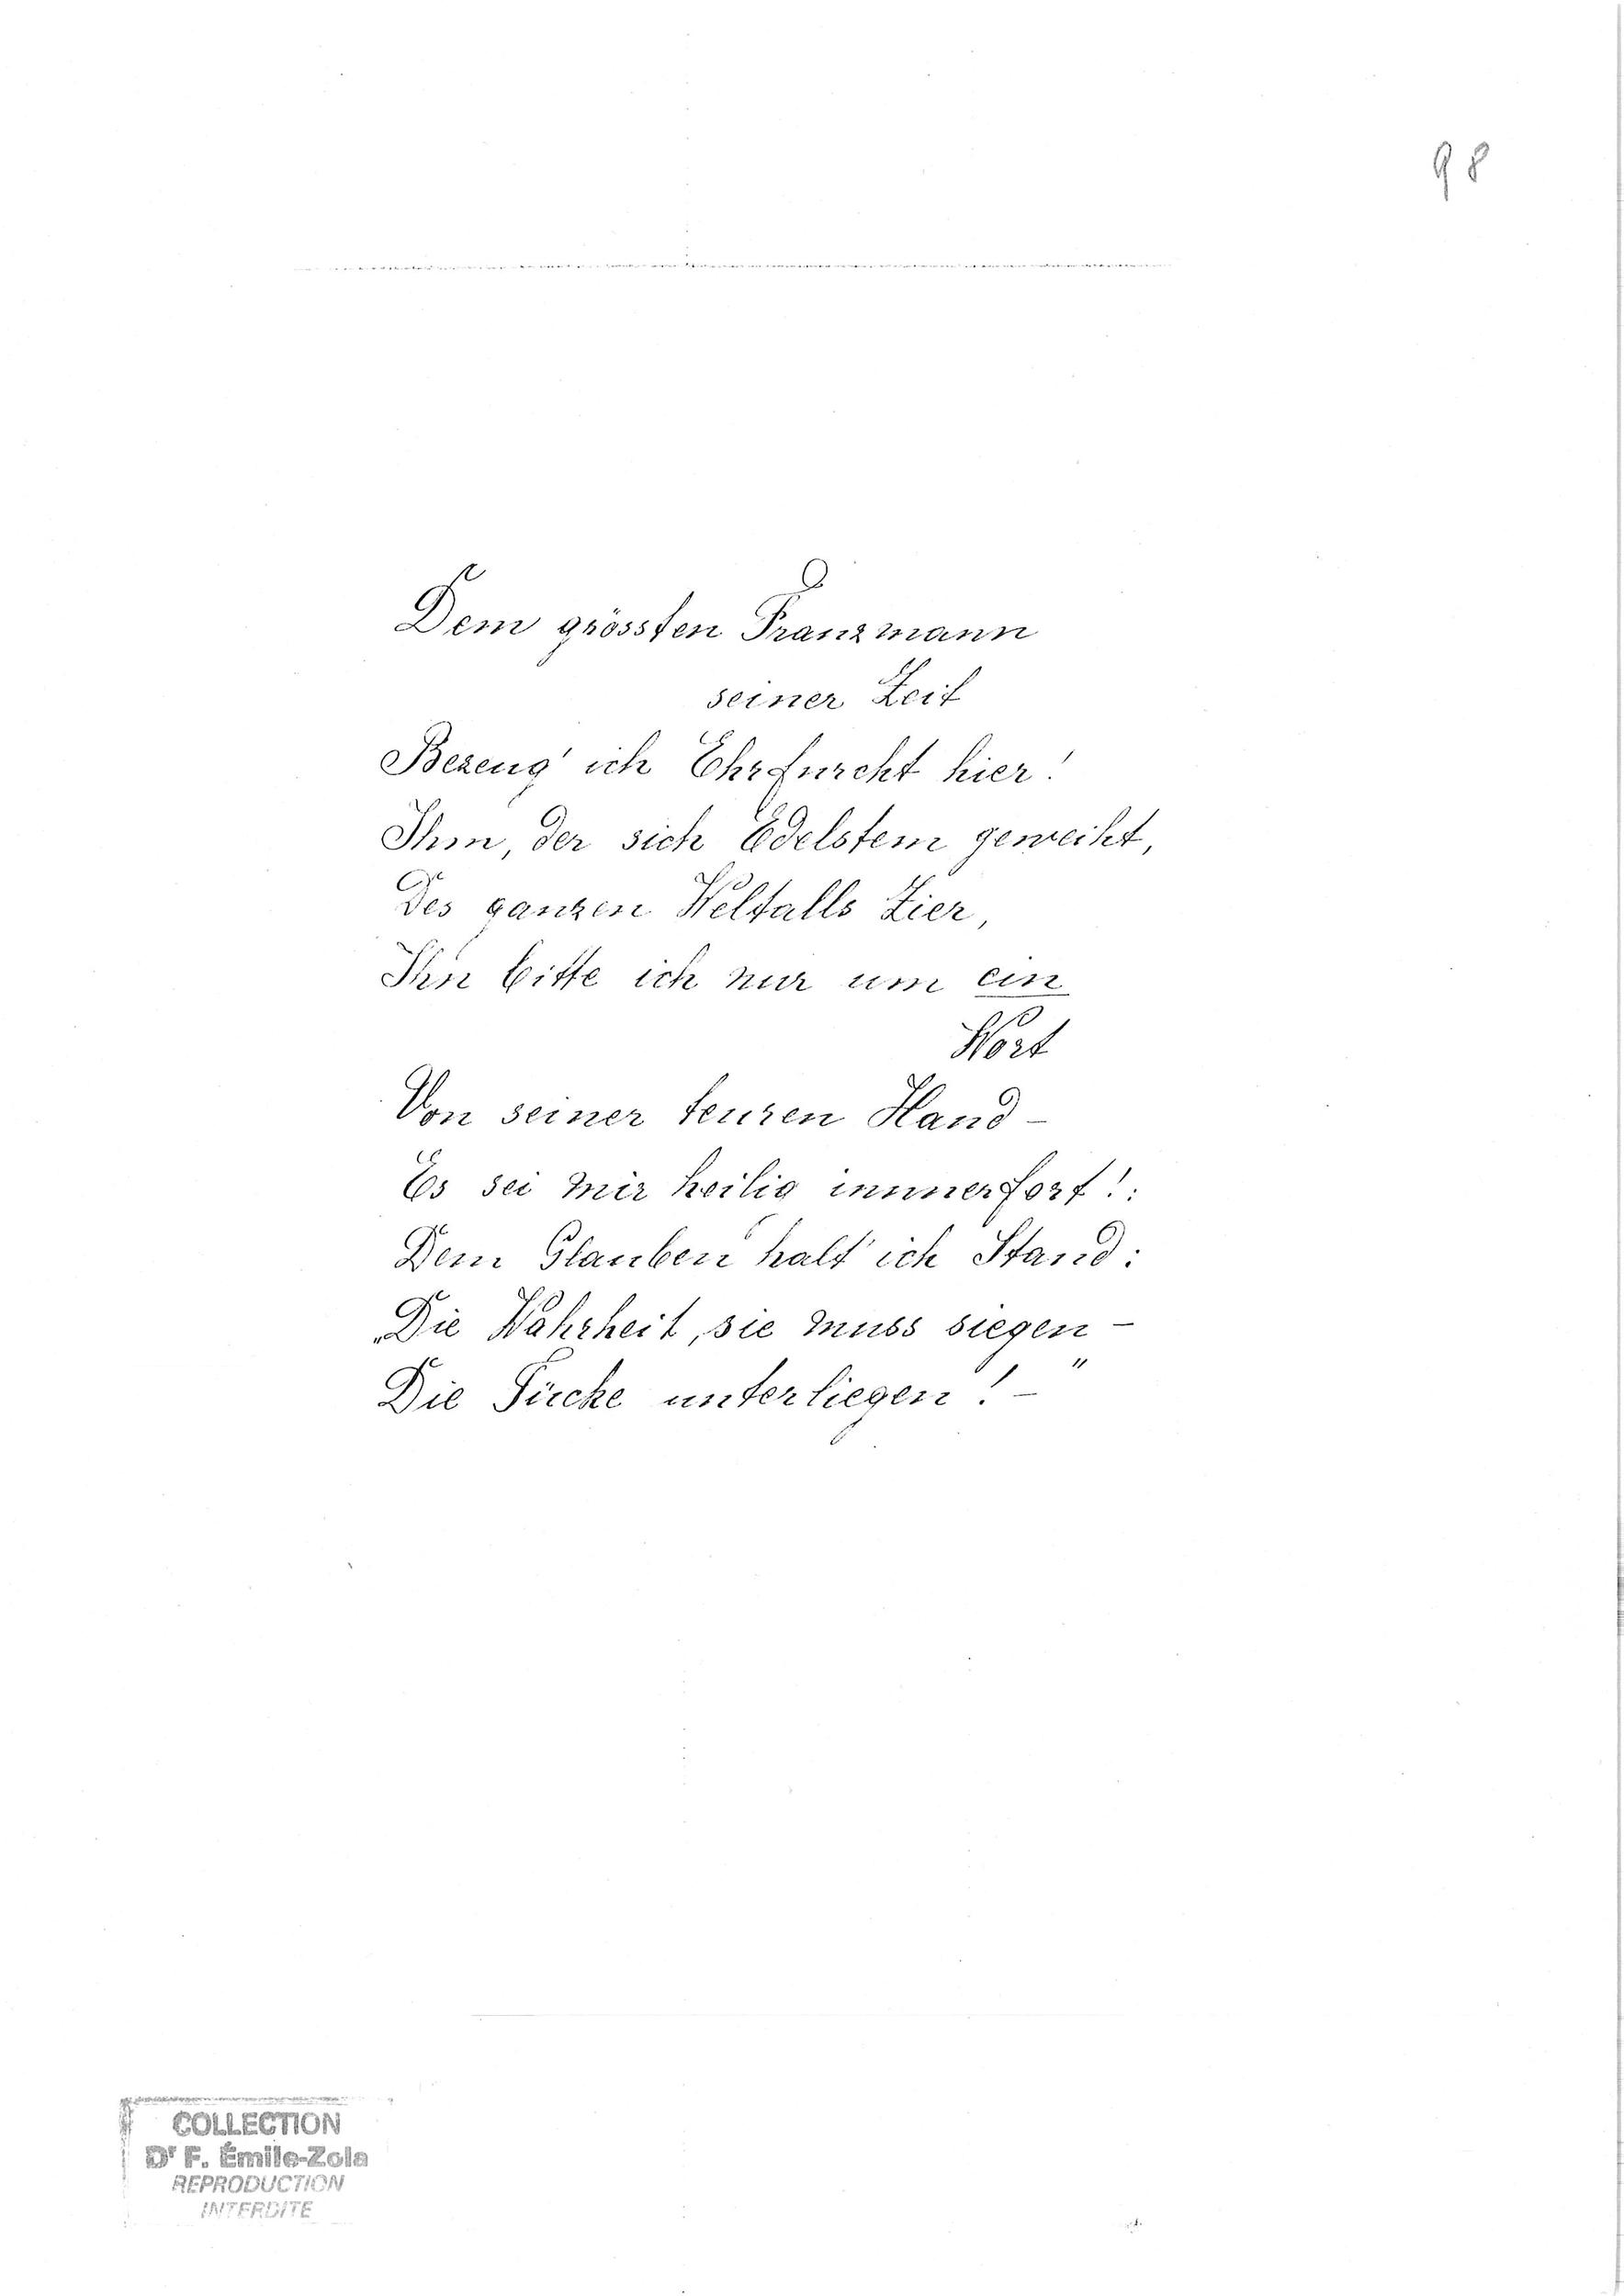 98
Dem grössten Franzmann
seiner Zeit
Bezeug' ich Ehrfurcht hier!
Ihm, der sich Edelstem geweiht,
Des ganzen Weltalls Zier,
Ihn bitte ich nur um ein
Wort
Von seiner teuren Hand –
Es sei mir heilig immerfort!:
Dem Glauben halt' ich Stand:
„Die Wahrheit, sie muss siegen –
Die Tücke unterliegen! –"
COLLECTION
Dr F. Émile-Zola
REPRODUCTION
INTERDITE